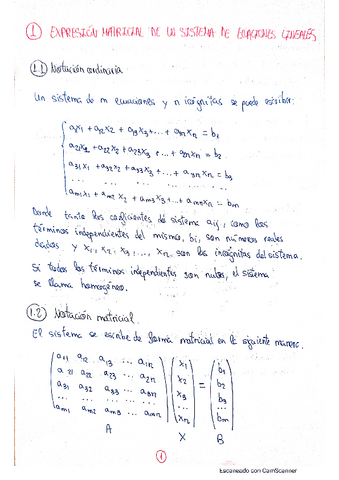 ① EXPRESIÓN MATRICIAL DE UN SISTEMA DE ECUACIONES LINEALES
1.1 Notación ordinaria
Un sistema de m ecuaciones y n incógnitas se puede escribir:
a₁x₁ + a₁₂x₂ + a₁₃x₃ + ... + a₁ₙxₙ = b₁
a₂₁x₁ + a₂₂x₂ + a₂₃x₃ + ... + a₂ₙxₙ = b₂
a₃₁x₁ + a₃₂x₂ + ... + a₃ₙxₙ = b₃
... ... ... ... ...
aₘ₁x₁ + aₘ₂x₂ + aₘ₃x₃ + ... + aₘₙxₙ = bₘ
Donde tanto los coeficientes de sistema aᵢⱼ, como los
términos independientes del mismo, bᵢ, son números reales
dados y x₁, x₂, x₃, ..., xₙ son las incógnitas del sistema.
Si todos los términos independientes son nulos, el sistema
se llama homogéneo.
1.2 Notación matricial
El sistema se escribe de forma matricial en la siguiente manera:
a₁₁ a₁₂ a₁₃ ... a₁ₙ x₁ b₁
a₂₁ a₂₂ a₂₃ ... a₂ₙ x₂ b₂
a₃₁ a₃₂ a₃₃ ... a₃ₙ x₃ = b₃
... ... ... ... ... ... ...
aₘ₁ aₘ₂ aₘ₃ ... aₘₙ xₙ bₘ
A X B
①
Escaneado con CamScanner